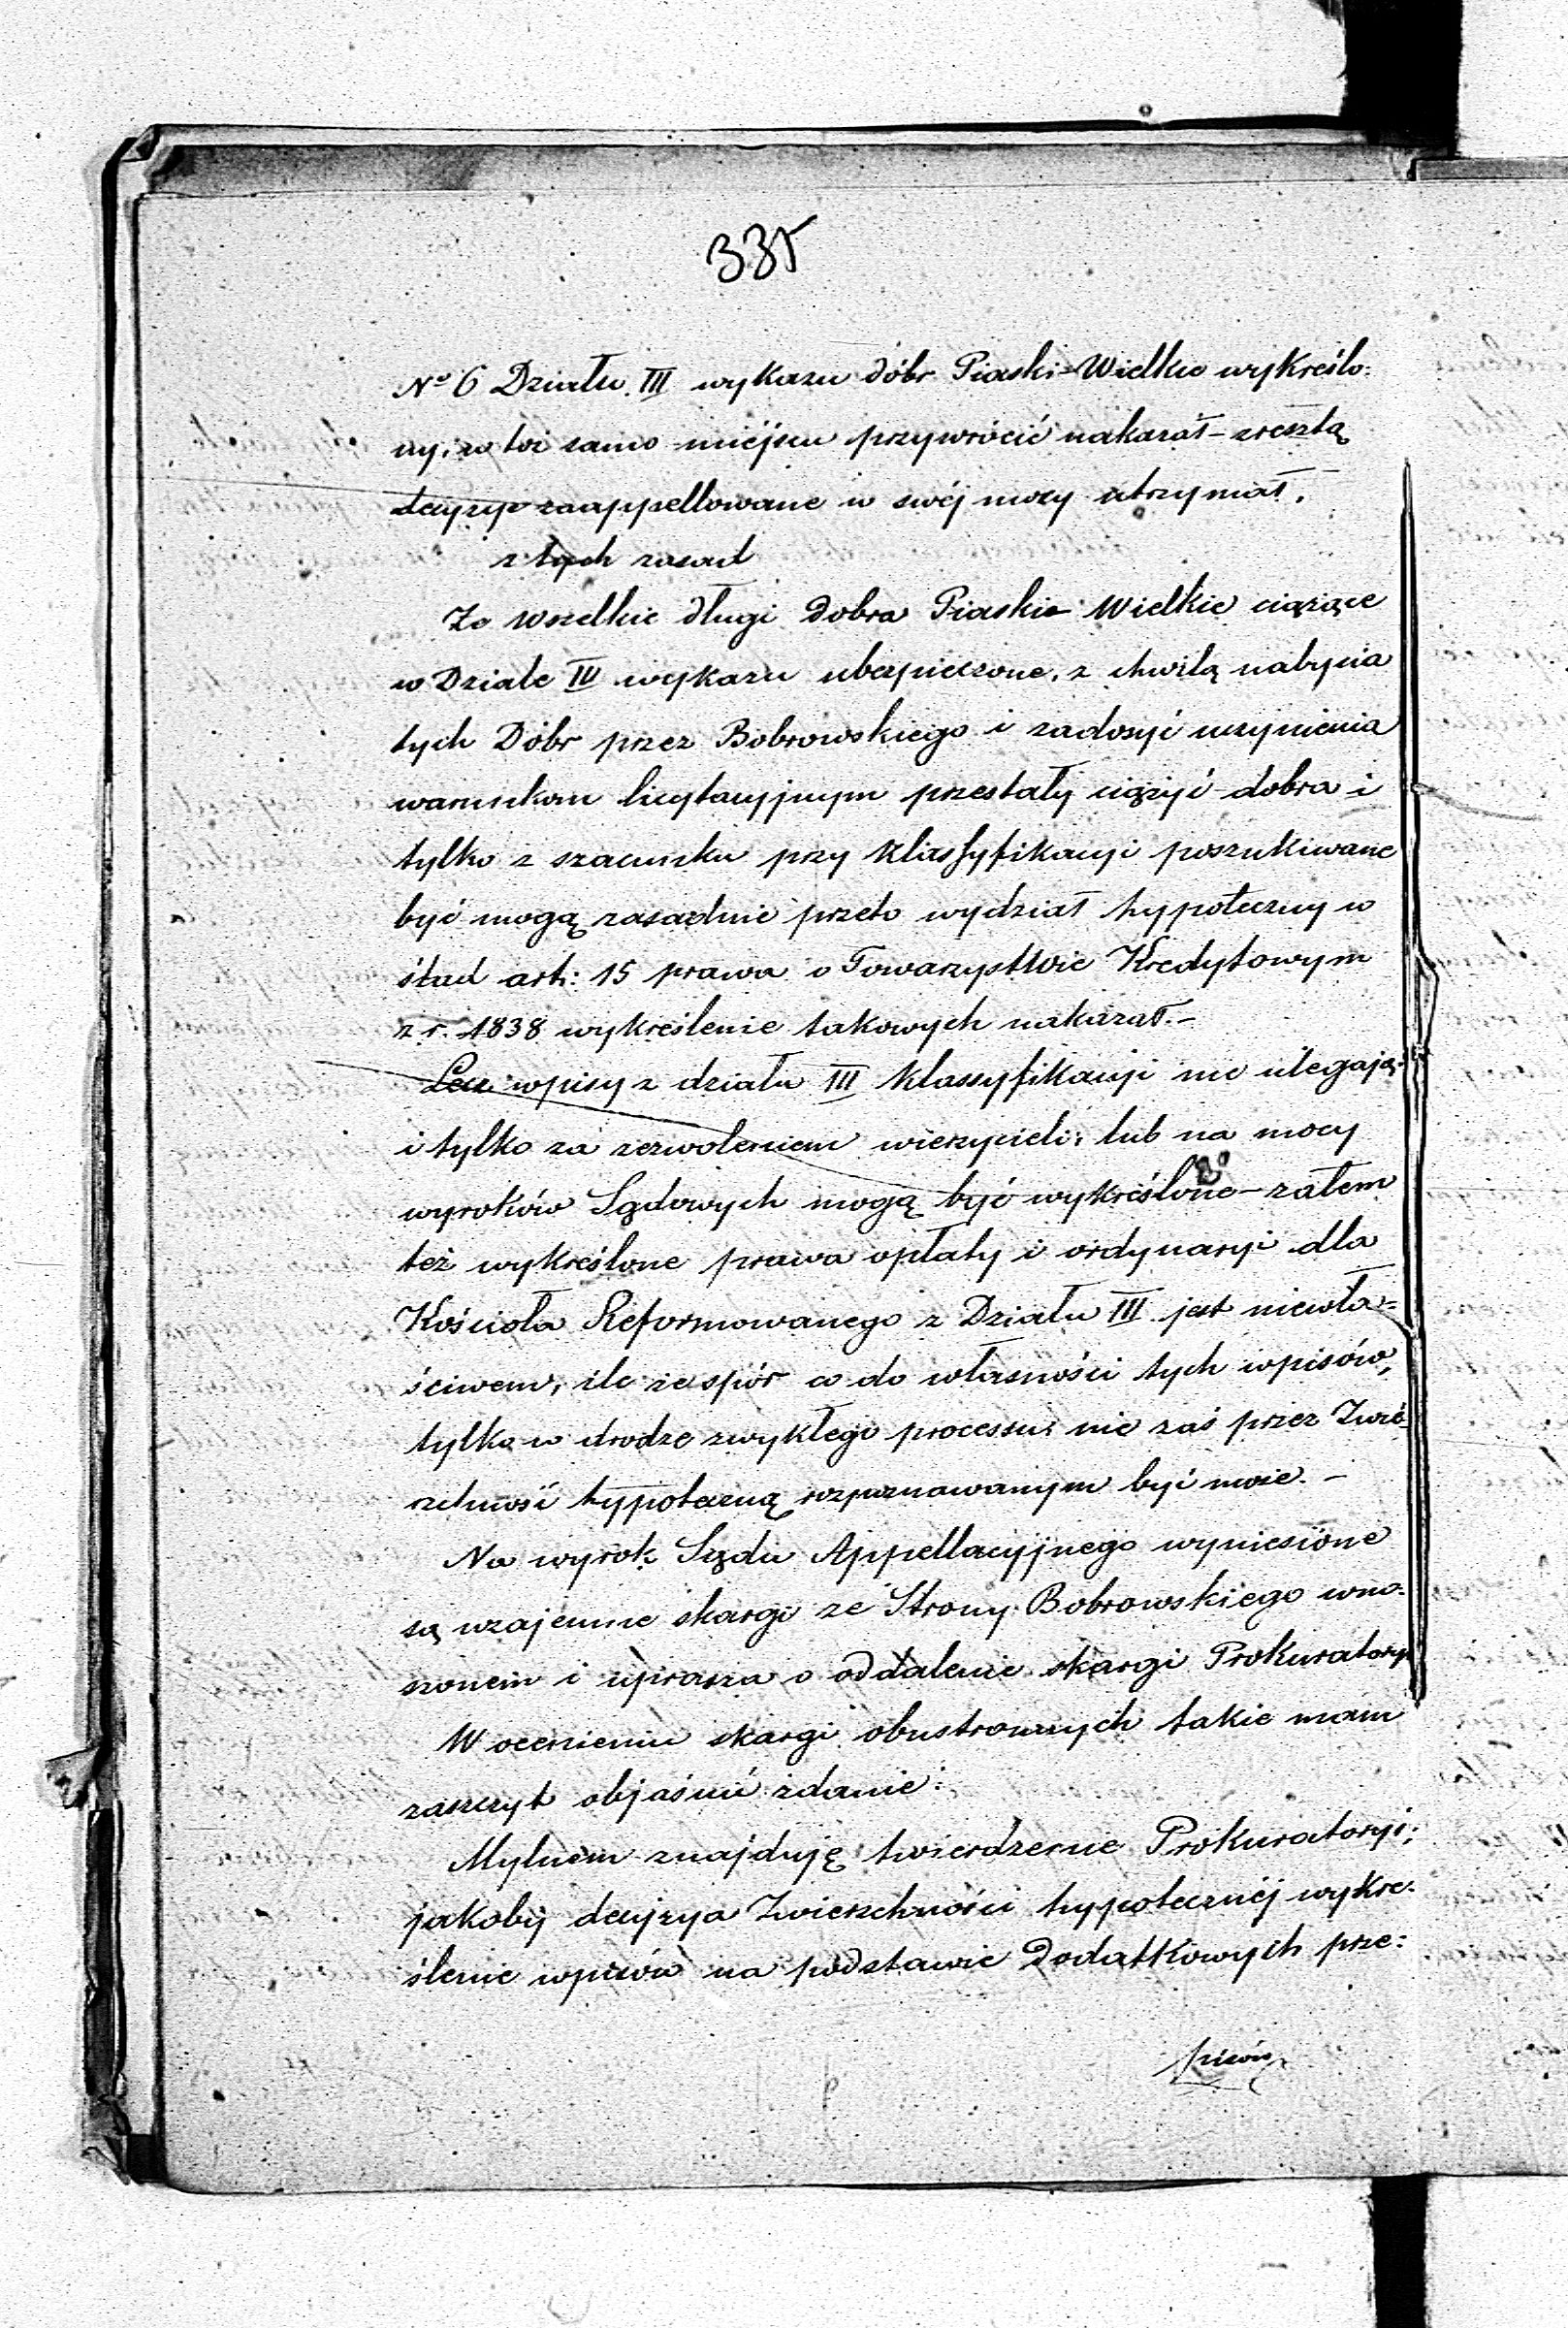 335
No 6 Działu III wykazu dóbr Piaski-Wielkie wykreślo:
ny, w toż samo miéjsce przywrócić nakazał – zresztą
decyzye zaappellowane w swéj mocy utrzymał.
z tych zasad
Że wszelkie długi Dobra Piaskie Wielkie ciążące
w Dziale IV wykazu ubezpieczone, z chwilą nabycia
tych Dóbr przez Bobrowskiego i zadosyć uczynienia
warunkom licytacyjnym przestały ciążyć dobra i
tylko z szacunku przy klassyfikacyi poszukiwane
być mogą, zasadnie przeto wydział hypoteczny w
ślad art: 15 prawa o Towarzystwie Kredytowym
z r. 1838 wykreślenie takowych nakazał. –
Lecz wpisy z działu III klassyfikacyi nie ulegają
i tylko za zezwoleniem wierzycieli, lub na mocy
wyroków Sądowych mogą być wykreślone – zatem
też wykreślone prawa opłaty i ordynaryi dla
Kościoła Reformowanego z Działu III jest niewła=
ściwem, ile że spór co do własności tych wpisów,
tylko w drodze zwykłego processu, nie zaś przez Zwié
rzchność hypoteczną rozpoznawanym być może. –
Na wyrok Sądu Appellacyjnego wyniesione
są wzajemne skargi ze Strony Bobrowskiego wno:
szonem i uprasza o oddalenie skargi Prokuratoryi
W ocenieniu skargi obustronnych takie mam
zaszczyt objaśnić zdanie:
Mylnem znajduję twierdzenie Prokuratoryi,
jakoby decyzya Zwierzchności hypotecznéj wykre:
ślenie wpisów na podstawie Dodatkowych prze:
pisów